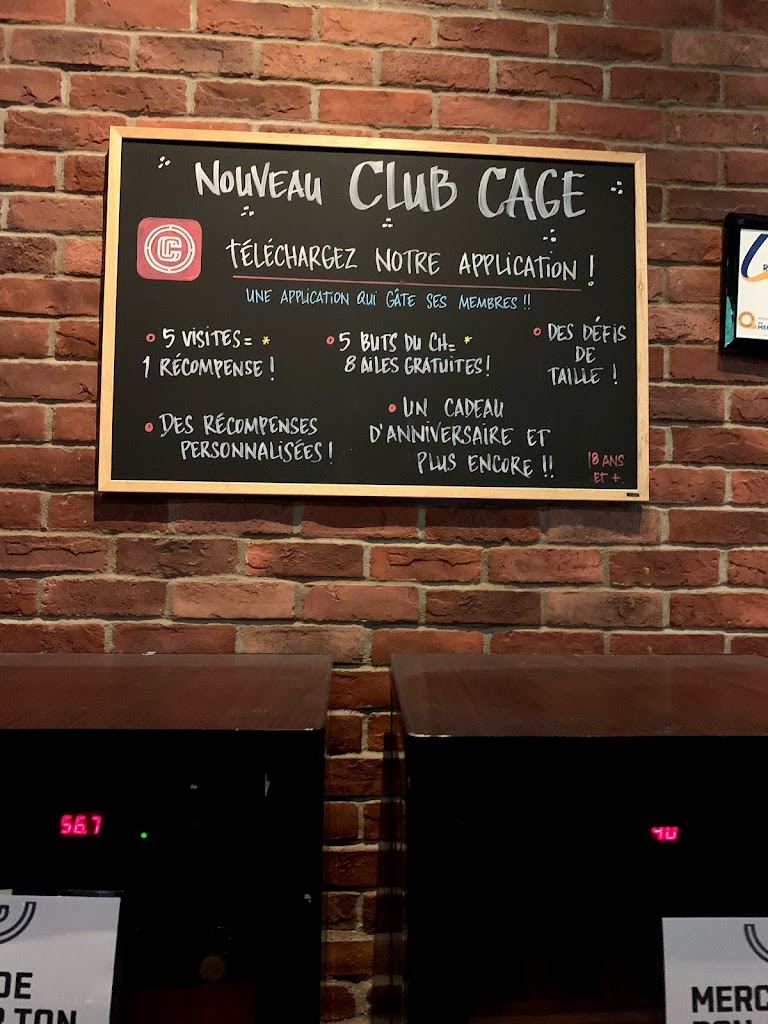 NOUVEAU CLUB CAGE
TÉLÉCHARGEZ NOTRE APPLICATION !
UNE APPLICATION QUI GÂTE SES MEMBRES !!
5 VISITES = *
1 RÉCOMPENSE !
5 BUTS DU CH= *
8 AILES GRATUITES !
DES DÉFIS
DE
TAILLE !
DES RÉCOMPENSES
PERSONNALISÉES !
UN CADEAU
D'ANNIVERSAIRE ET
PLUS ENCORE !!
18 ANS
ET +.
56.7
40
DE
MERC